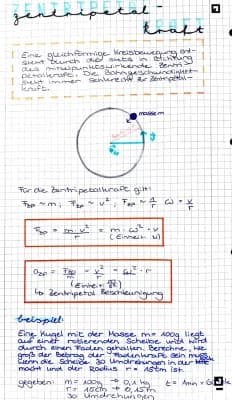 zentripetal-
kraft
Eine gleichförmige Kreisbewegung ent-
steht durch die stets in Richtung
des Mittelpunktswirkende Zentri-
petalkraft. Die Bahngeschwindigkeit
steht immer senkrecht zur Zentripetal-
kraft.
masse m
r
Für die Zentripetalkraft gilt:
F_ZP ~ m ; F_ZP ~ v² ; F_ZP ~ 1/r ω = v/r
F_ZP = m·v²/r = m·ω²·r
(Einheit: N)
a_ZP = F_ZP/m = v²/r = ω²·r
↳ Zentripetal Beschleunigung
beispiel:
Eine Kugel mit der Masse m = 100g liegt
auf einer rotierenden Scheibe und wird
durch einen Faden gehalten. Berechne, wie
groß der Betrag der Fadenkraft sein muss,
wenn die Scheibe 30 Umdrehungen in der
macht und der Radius r = 15cm ist.
gegeben: m = 100g → 0,1 kg t = 1min
r = 15cm → 0,15m
30 Umdrehungen